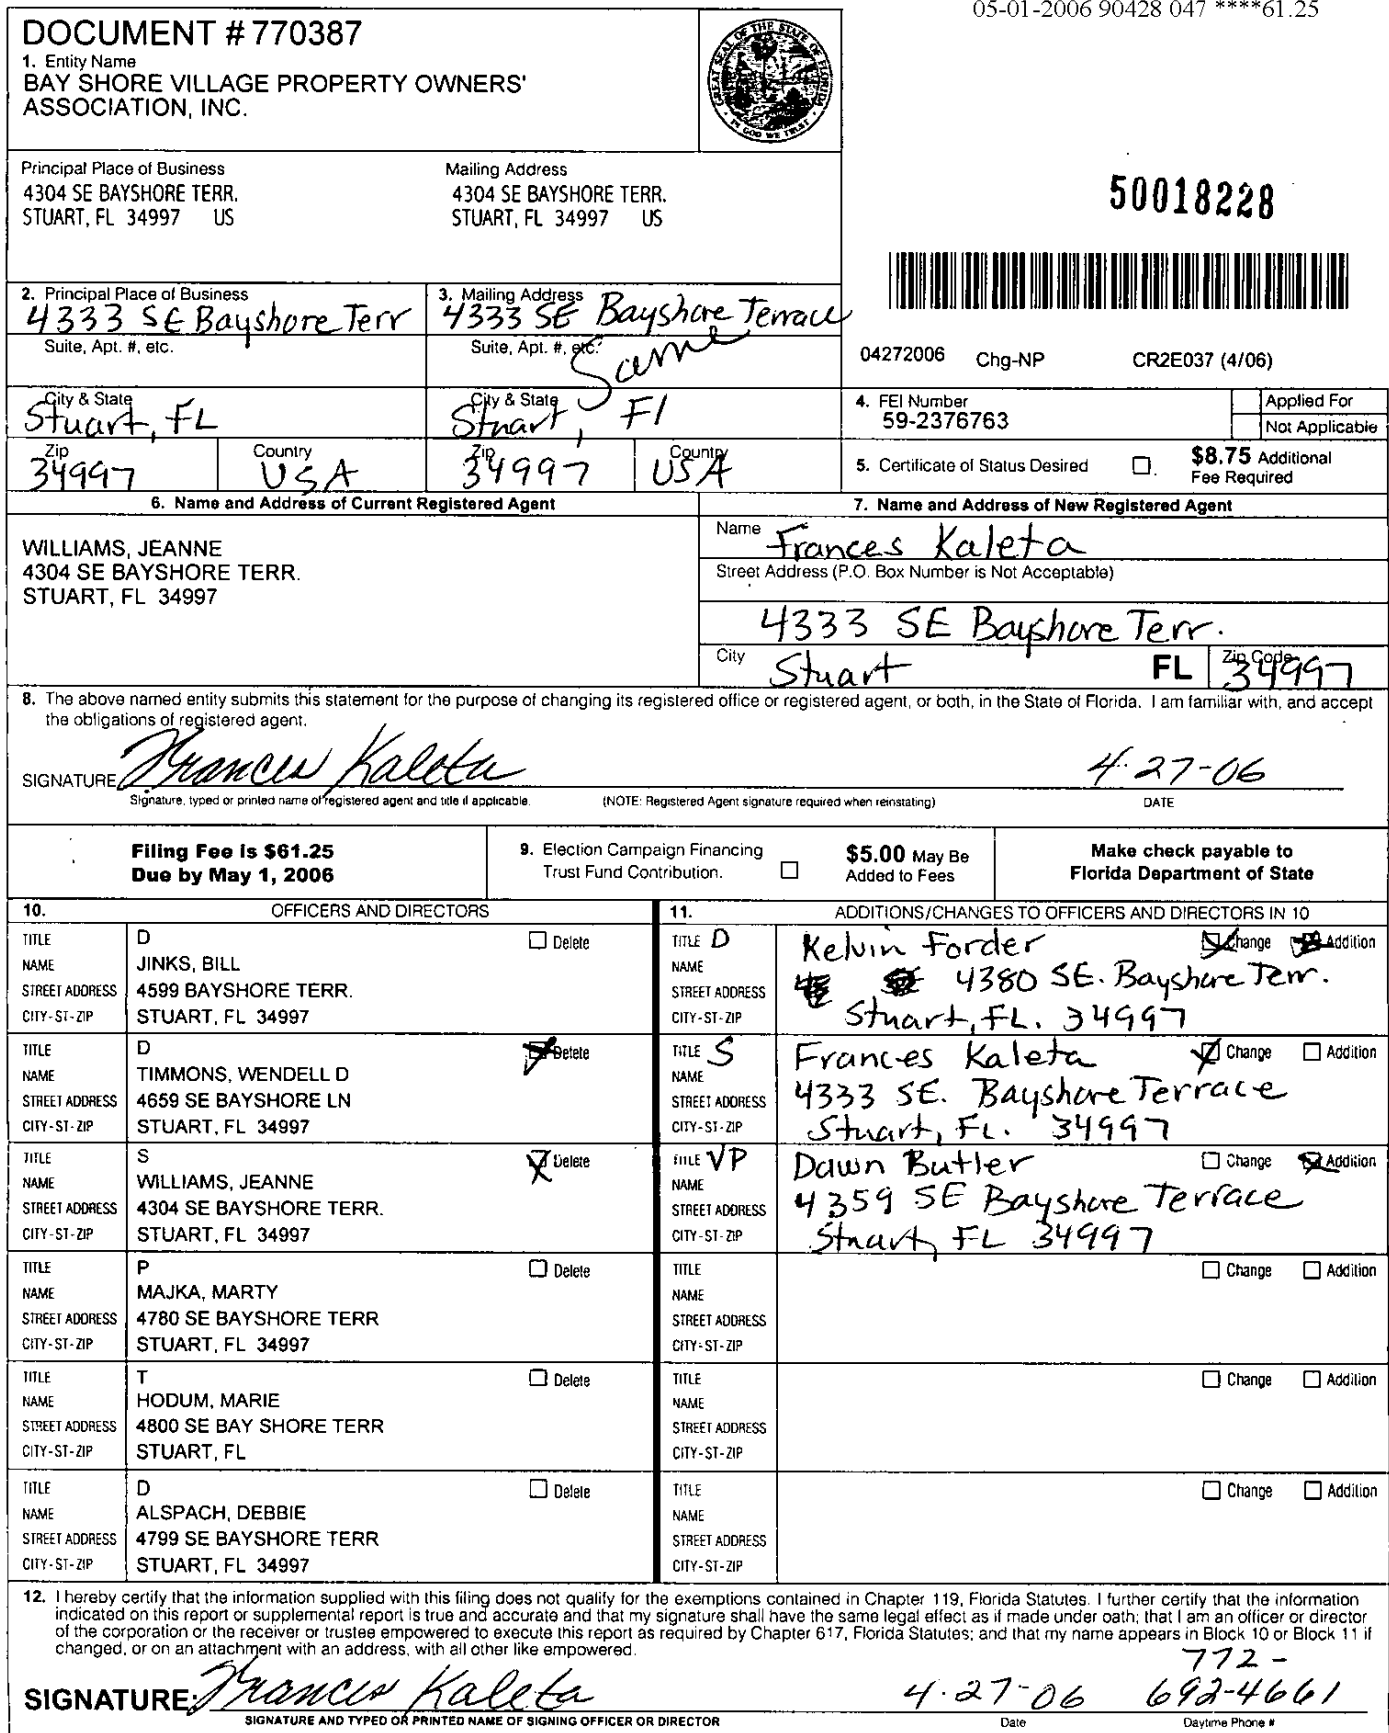 05-01-2006 90428 047 ****61.25
DOCUMENT # 770387
1. Entity Name
BAY SHORE VILLAGE PROPERTY OWNERS'
ASSOCIATION, INC.
GREAT SEAL OF THE STATE OF FLORIDA
IN GOD WE TRUST
Principal Place of Business
4304 SE BAYSHORE TERR.
STUART, FL 34997 US
Mailing Address
4304 SE BAYSHORE TERR.
STUART, FL 34997 US
50018228
2. Principal Place of Business
4333 SE Bayshore Terr
Suite, Apt. #, etc.
City & State
Stuart, FL
Zip
34997
Country
USA
3. Mailing Address
4333 SE Bayshore Terrace
Suite, Apt. #, etc.
Same
City & State
Stuart, Fl
Zip
34997
Country
USA
04272006 Chg-NP CR2E037 (4/06)
4. FEI Number
59-2376763
Applied For
Not Applicable
5. Certificate of Status Desired
$8.75 Additional
Fee Required
6. Name and Address of Current Registered Agent
WILLIAMS, JEANNE
4304 SE BAYSHORE TERR.
STUART, FL 34997
7. Name and Address of New Registered Agent
Name Frances Kaleta
Street Address (P.O. Box Number is Not Acceptable)
4333 SE Bayshore Terr.
City Stuart FL Zip Code 34997
8. The above named entity submits this statement for the purpose of changing its registered office or registered agent, or both, in the State of Florida. I am familiar with, and accept
the obligations of registered agent.
SIGNATURE Frances Kaleta 4-27-06
Signature, typed or printed name of registered agent and title if applicable. (NOTE: Registered Agent signature required when reinstating) DATE
Filing Fee is $61.25
Due by May 1, 2006
9. Election Campaign Financing
Trust Fund Contribution.
$5.00 May Be
Added to Fees
Make check payable to
Florida Department of State
10. OFFICERS AND DIRECTORS
TITLE D Delete
NAME JINKS, BILL
STREET ADDRESS 4599 BAYSHORE TERR.
CITY-ST-ZIP STUART, FL 34997
TITLE D Delete
NAME TIMMONS, WENDELL D
STREET ADDRESS 4659 SE BAYSHORE LN
CITY-ST-ZIP STUART, FL 34997
TITLE S Delete
NAME WILLIAMS, JEANNE
STREET ADDRESS 4304 SE BAYSHORE TERR.
CITY-ST-ZIP STUART, FL 34997
TITLE P Delete
NAME MAJKA, MARTY
STREET ADDRESS 4780 SE BAYSHORE TERR
CITY-ST-ZIP STUART, FL 34997
TITLE T Delete
NAME HODUM, MARIE
STREET ADDRESS 4800 SE BAY SHORE TERR
CITY-ST-ZIP STUART, FL
TITLE D Delete
NAME ALSPACH, DEBBIE
STREET ADDRESS 4799 SE BAYSHORE TERR
CITY-ST-ZIP STUART, FL 34997
11. ADDITIONS/CHANGES TO OFFICERS AND DIRECTORS IN 10
TITLE D Kelvin Forder Change Addition
NAME
STREET ADDRESS 4380 SE. Bayshore Terr.
CITY-ST-ZIP Stuart, FL. 34997
TITLE S Frances Kaleta Change Addition
NAME
STREET ADDRESS 4333 SE. Bayshore Terrace
CITY-ST-ZIP Stuart, FL. 34997
TITLE VP Dawn Butler Change Addition
NAME
STREET ADDRESS 4359 SE Bayshore Terrace
CITY-ST-ZIP Stuart, FL 34997
TITLE Change Addition
NAME
STREET ADDRESS
CITY-ST-ZIP
TITLE Change Addition
NAME
STREET ADDRESS
CITY-ST-ZIP
TITLE Change Addition
NAME
STREET ADDRESS
CITY-ST-ZIP
12. I hereby certify that the information supplied with this filing does not qualify for the exemptions contained in Chapter 119, Florida Statutes. I further certify that the information
indicated on this report or supplemental report is true and accurate and that my signature shall have the same legal effect as if made under oath; that I am an officer or director
of the corporation or the receiver or trustee empowered to execute this report as required by Chapter 617, Florida Statutes; and that my name appears in Block 10 or Block 11 if
changed, or on an attachment with an address, with all other like empowered.
772-
SIGNATURE: Frances Kaleta 4-27-06 692-4661
SIGNATURE AND TYPED OR PRINTED NAME OF SIGNING OFFICER OR DIRECTOR Date Daytime Phone #